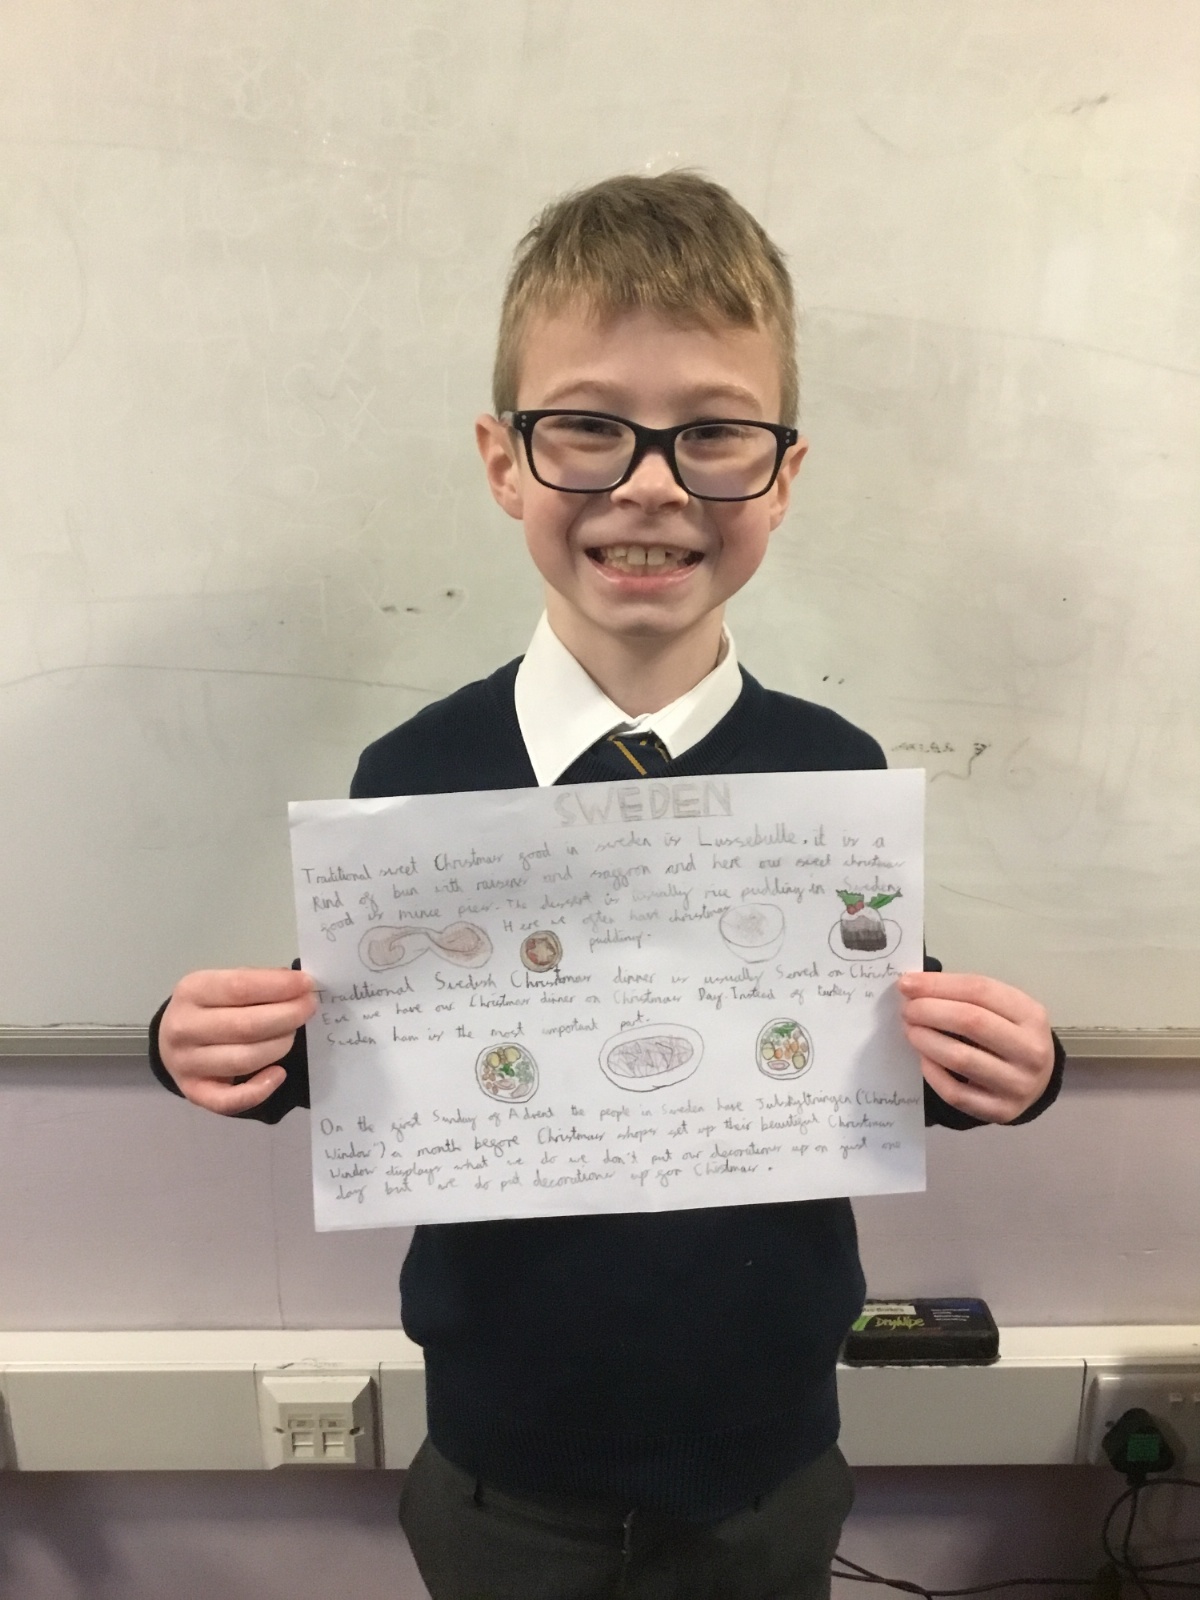 SWEDEN
Traditional sweet Christmas food in sweden is Lussebulle. it is a
kind of bun with raisins and saffron and here our sweet christmas
food is mince pies. The dessert is usually rice pudding in Sweden,
Here we often have christmas
pudding.
Traditional Swedish Christmas dinner is usually Served on Christmas
Eve we have our Christmas dinner on Christmas Day. Instead of turkey in
Sweden ham is the most important part.
On the first Sunday of Advent the people in Sweden have Julskyltningen ("Christmas
Window") a month before Christmas shops set up their beautiful Christmas
window displays what we do we don't put our decorations up on just one
day but we do put decorations up for Christmas.
DryWipe